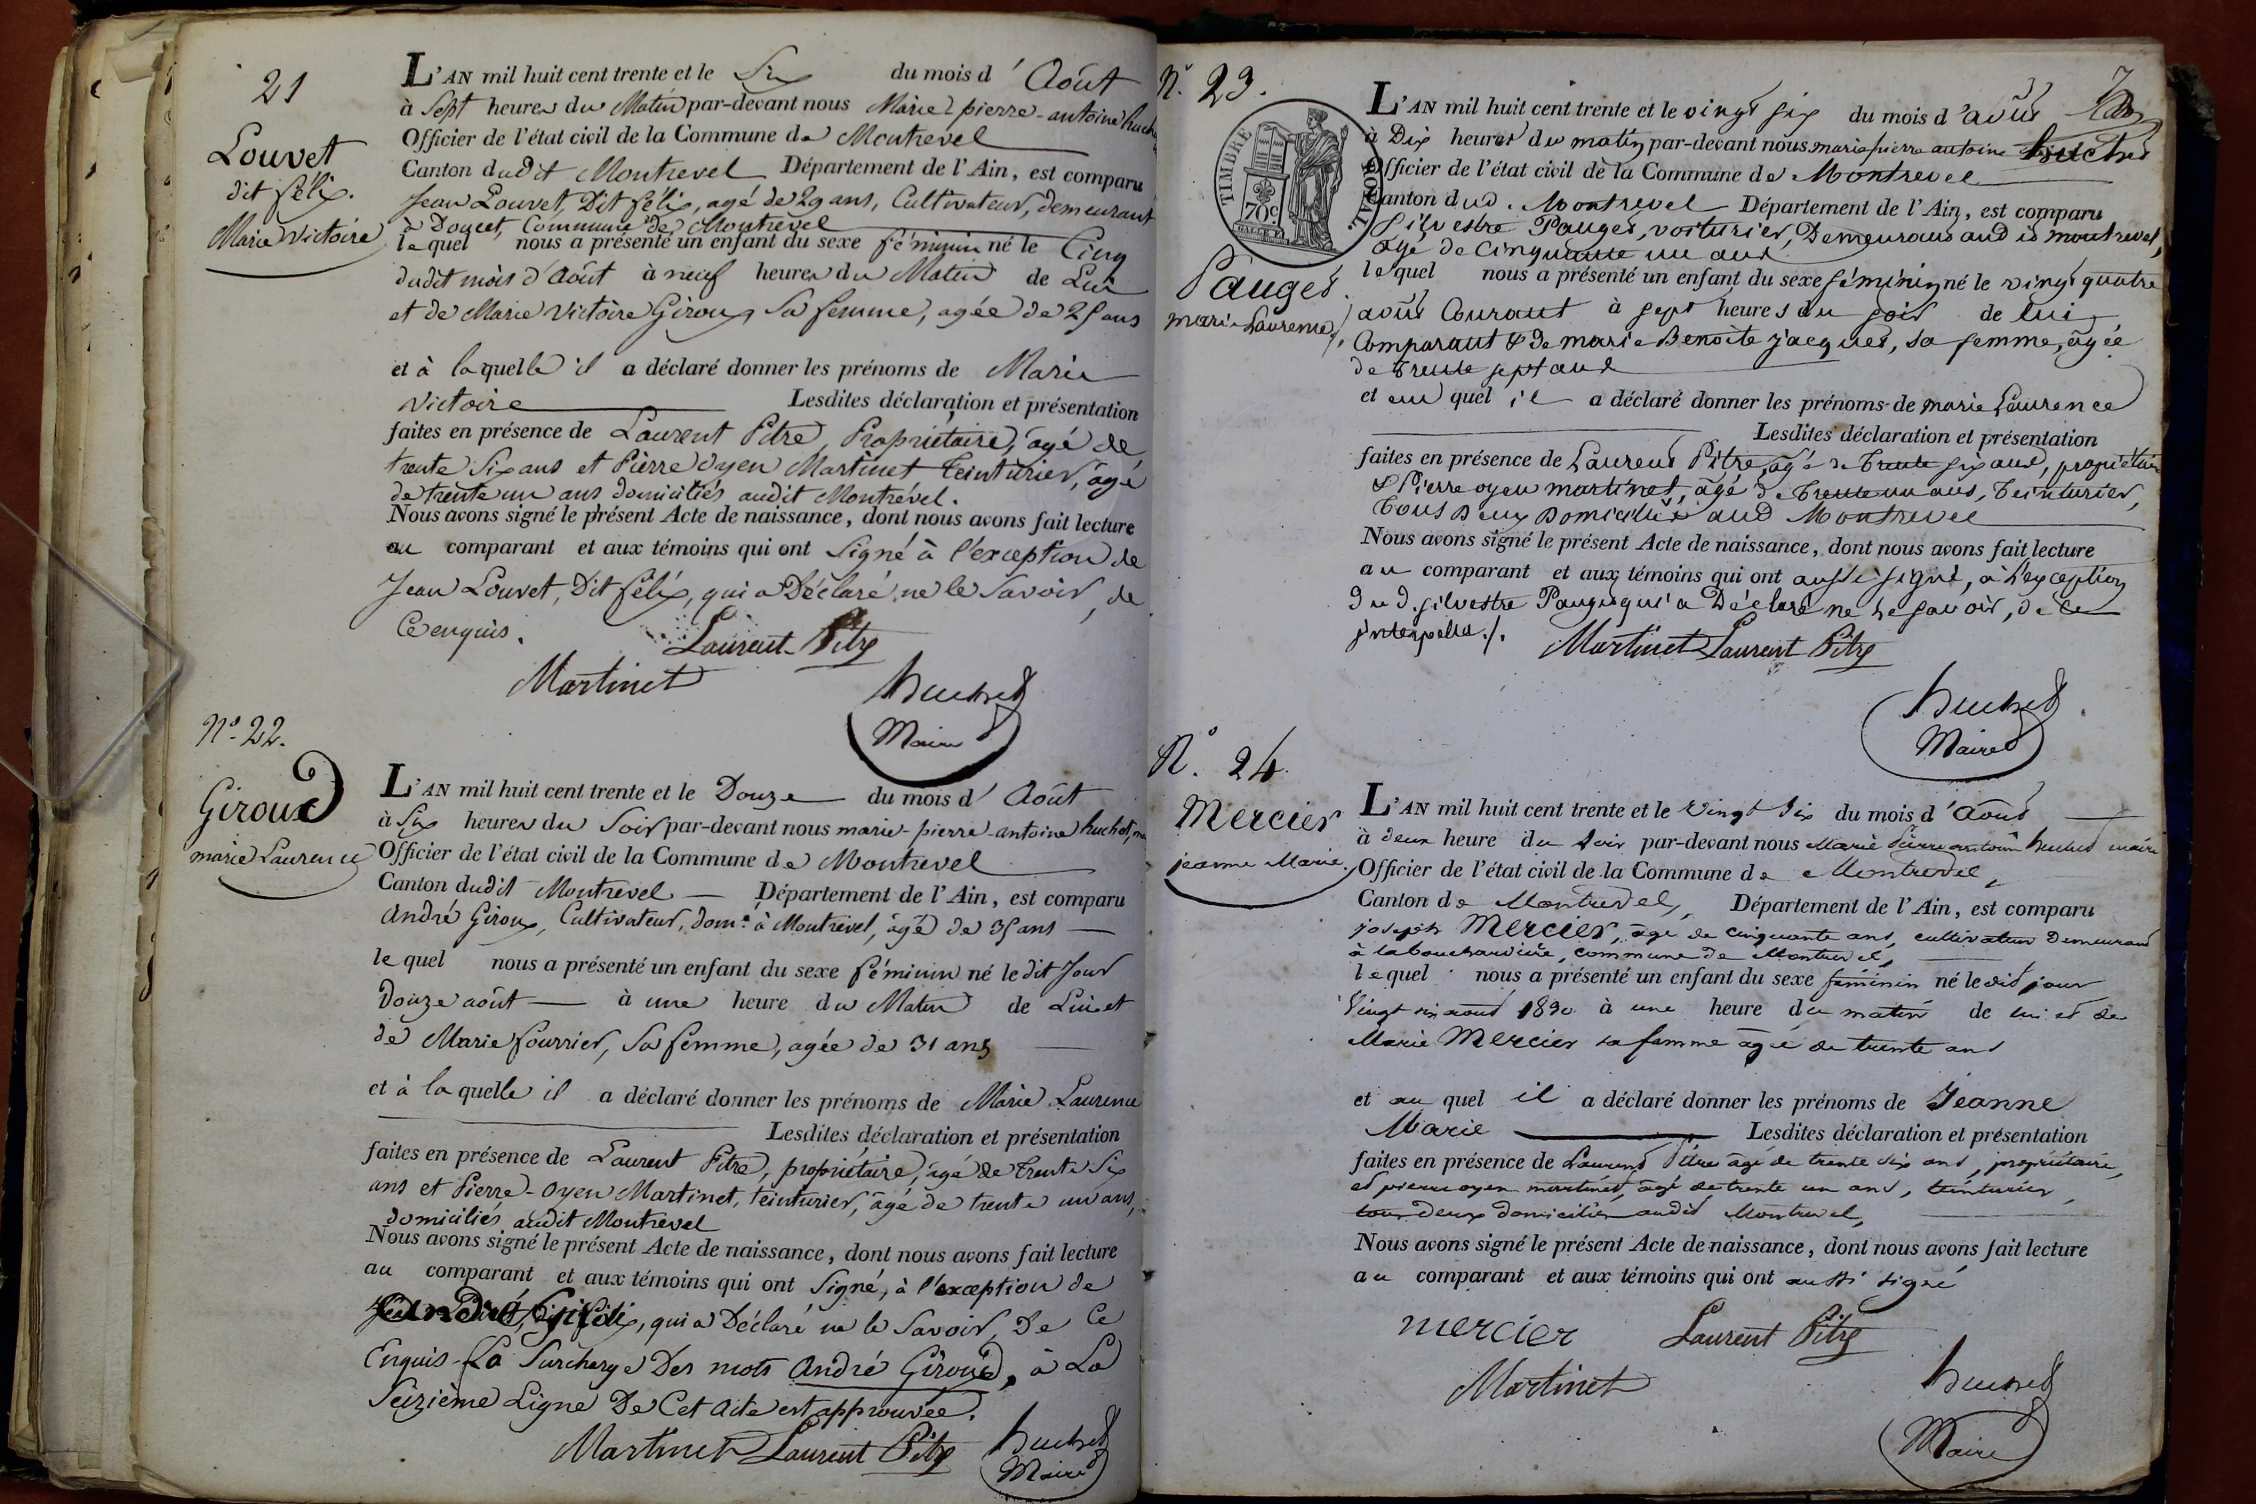 21
Louvet
dit félix.
Marie Victoire
L'AN mil huit cent trente et le Six du mois d'Août
à Sept heures du Matin par-devant nous Marie-pierre-antoine huchet
Officier de l'état civil de la Commune de Montrevel
Canton dudit Montrevel Département de l'Ain, est comparu
Jean Louvet, Dit félix, agé de 29 ans, Cultivateur, demeurant
à Doucet, Commune de Montrevel
lequel nous a présenté un enfant du sexe féminin né le Cinq
dudit mois d'Août à neuf heures du Matin de Lui
et de Marie Victoire Giroux sa femme, agée de 25 ans
et à laquelle il a déclaré donner les prénoms de Marie
Victoire Lesdites déclaration et présentation
faites en présence de Laurent Pitre, Propriétaire, âgé de
trente Six ans et Pierre oyen Martinet teinturier, âgé
de trente un ans domiciliés audit Montrével.
Nous avons signé le présent Acte de naissance, dont nous avons fait lecture
au comparant et aux témoins qui ont Signé à l'exception de
Jean Louvet, Dit félix, qui a Déclaré ne le Savoir, de
Ce enquis.
Laurent Pitre
Martinet
huchet
Maire
N° 22.
Giroud
marie Laurence
L'AN mil huit cent trente et le Douze du mois d'Août
à Six heures du Soir par-devant nous marie-pierre-antoine huchet,
Officier de l'état civil de la Commune de Montrevel
Canton dudit Montrevel Département de l'Ain, est comparu
André Giroux, Cultivateur, dom.é à Montrevel, âgé de 35 ans
lequel nous a présenté un enfant du sexe féminin né ledit Jour
Douze août à une heure du Matin de Lui et
de Marie fourrier, Sa femme, agée de 31 ans
et à laquelle il a déclaré donner les prénoms de Marie Laurence
Lesdites déclaration et présentation
faites en présence de Laurent Pitre, propriétaire, âgé de trente Six
ans et Pierre-Oyen Martinet, teinturier, âgé de trente un ans,
domiciliés audit Montrevel
Nous avons signé le présent Acte de naissance, dont nous avons fait lecture
au comparant et aux témoins qui ont Signé, à l'exception de
qui a Déclaré ne le Savoir, De Ce
Enquis. La Surcharge Des mots André Giroud, à La
Seizième Ligne De Cet acte est approuvée.
Martinet Laurent Pitre huchet
Maire
N° 23.
TIMBRE ROYAL
70c
Pauget
marie Laurence
7
L'AN mil huit cent trente et le vingt six du mois d'août
à Dix heures du matin par-devant nous marie pierre antoine huchet
Officier de l'état civil de la Commune de Montrevel
Canton dud. Montrevel Département de l'Ain, est comparu
Silvestre Pauget, voiturier, Demeurant aud it montrevel,
âgé de Cinquante un ans
lequel nous a présenté un enfant du sexe féminin né le vingt quatre
août Courant à sept heures du soir de lui
Comparant & de marie Benoite jacquet, sa femme, âgée
de trente sept ans
et au quel il a déclaré donner les prénoms de marie Laurence
Lesdites déclaration et présentation
faites en présence de Laurent Pitre, âgé de trente six ans, propriétaire
& Pierre oyen martinet, âgé de trente un ans, teinturier,
tous Deux Domiciliés aud Montrevel
Nous avons signé le présent Acte de naissance, dont nous avons fait lecture
au comparant et aux témoins qui ont aussi signé, à l'exception
dud. silvestre Pauget qui a Déclaré ne le savoir, de ce
interpellé./.
Martinet Laurent Pitre
huchet
Maire
N° 24
Mercier
jeanne Marie
L'AN mil huit cent trente et le Vingt Six du mois d'Août
à deux heure du Soir par-devant nous Marie Pierre antoine huchet maire
Officier de l'état civil de la Commune de Montrevel,
Canton de Montrevel, Département de l'Ain, est comparu
joseph Mercier, âgé de cinquante ans, cultivateur Demeurant
à labouchardière, commune de Montrevel,
lequel nous a présenté un enfant du sexe féminin né ledit jour
Vingt six aout 1830 à une heure du matin de lui et de
Marie Mercier sa femme âgée de trente ans
et au quel il a déclaré donner les prénoms de Jeanne
Marie Lesdites déclaration et présentation
faites en présence de Laurent Pitre âgé de trente six ans, propriétaire,
et pierre oyen martinet, âgé de trente un ans, teinturier,
tous Deux domiciliés audit Montrevel,
Nous avons signé le présent Acte de naissance, dont nous avons fait lecture
au comparant et aux témoins qui ont aussi signé
mercier Laurent Pitre
Martinet
huchet
Maire